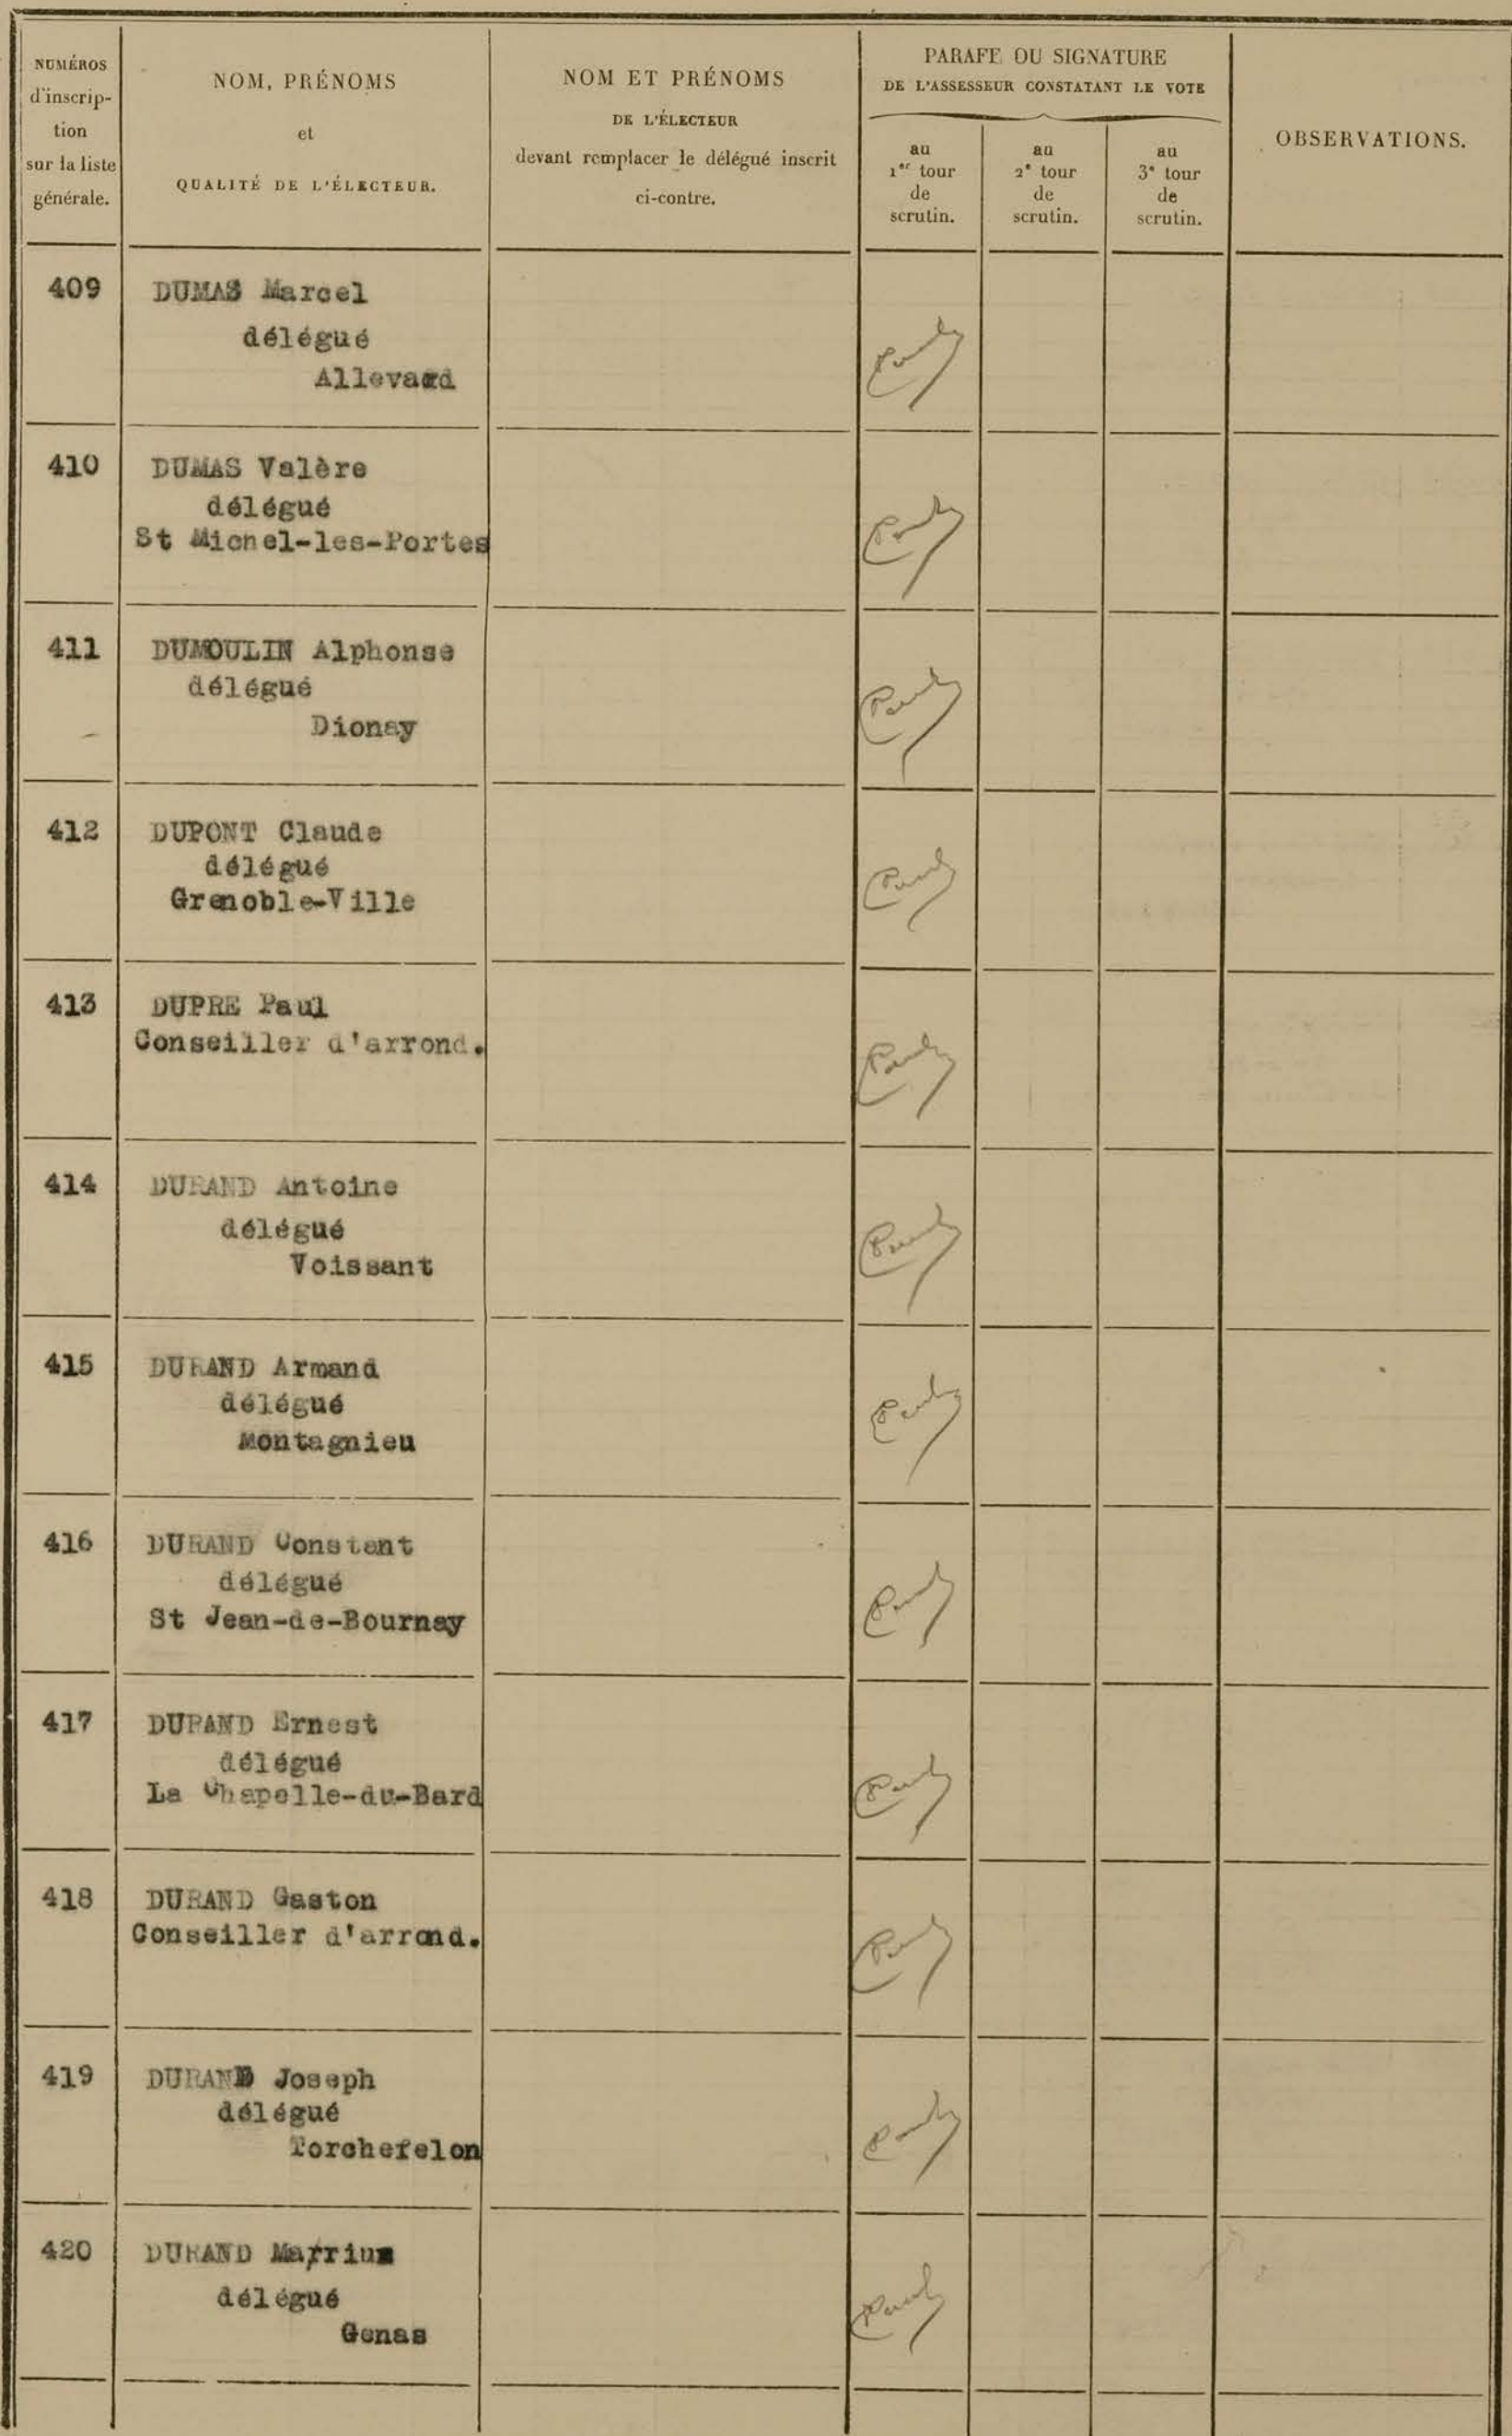 NUMÉROS
d'inscrip-
tion
sur la liste
générale.
NOM, PRÉNOMS
et
QUALITÉ DE L'ÉLECTEUR.
NOM ET PRÉNOMS
DE L'ÉLECTEUR
devant remplacer le délégué inscrit
ci-contre.
PARAFE OU SIGNATURE
DE L'ASSESSEUR CONSTATANT LE VOTE
au
1er tour
de
scrutin.
au
2e tour
de
scrutin.
au
3e tour
de
scrutin.
OBSERVATIONS.
409 DUMAS Marcel
délégué
Allevard
410 DUMAS Valère
délégué
St Michel-les-Portes
411 DUMOULIN Alphonse
délégué
Dionay
412 DUPONT Claude
délégué
Grenoble-Ville
413 DUPRE Paul
Conseiller d'arrond.
414 DURAND Antoine
délégué
Voissant
415 DURAND Armand
délégué
Montagnieu
416 DURAND Constant
délégué
St Jean-de-Bournay
417 DURAND Ernest
délégué
La Chapelle-du-Bard
418 DURAND Gaston
Conseiller d'arrond.
419 DURAND Joseph
délégué
Torchefelon
420 DURAND Marius
délégué
Genas